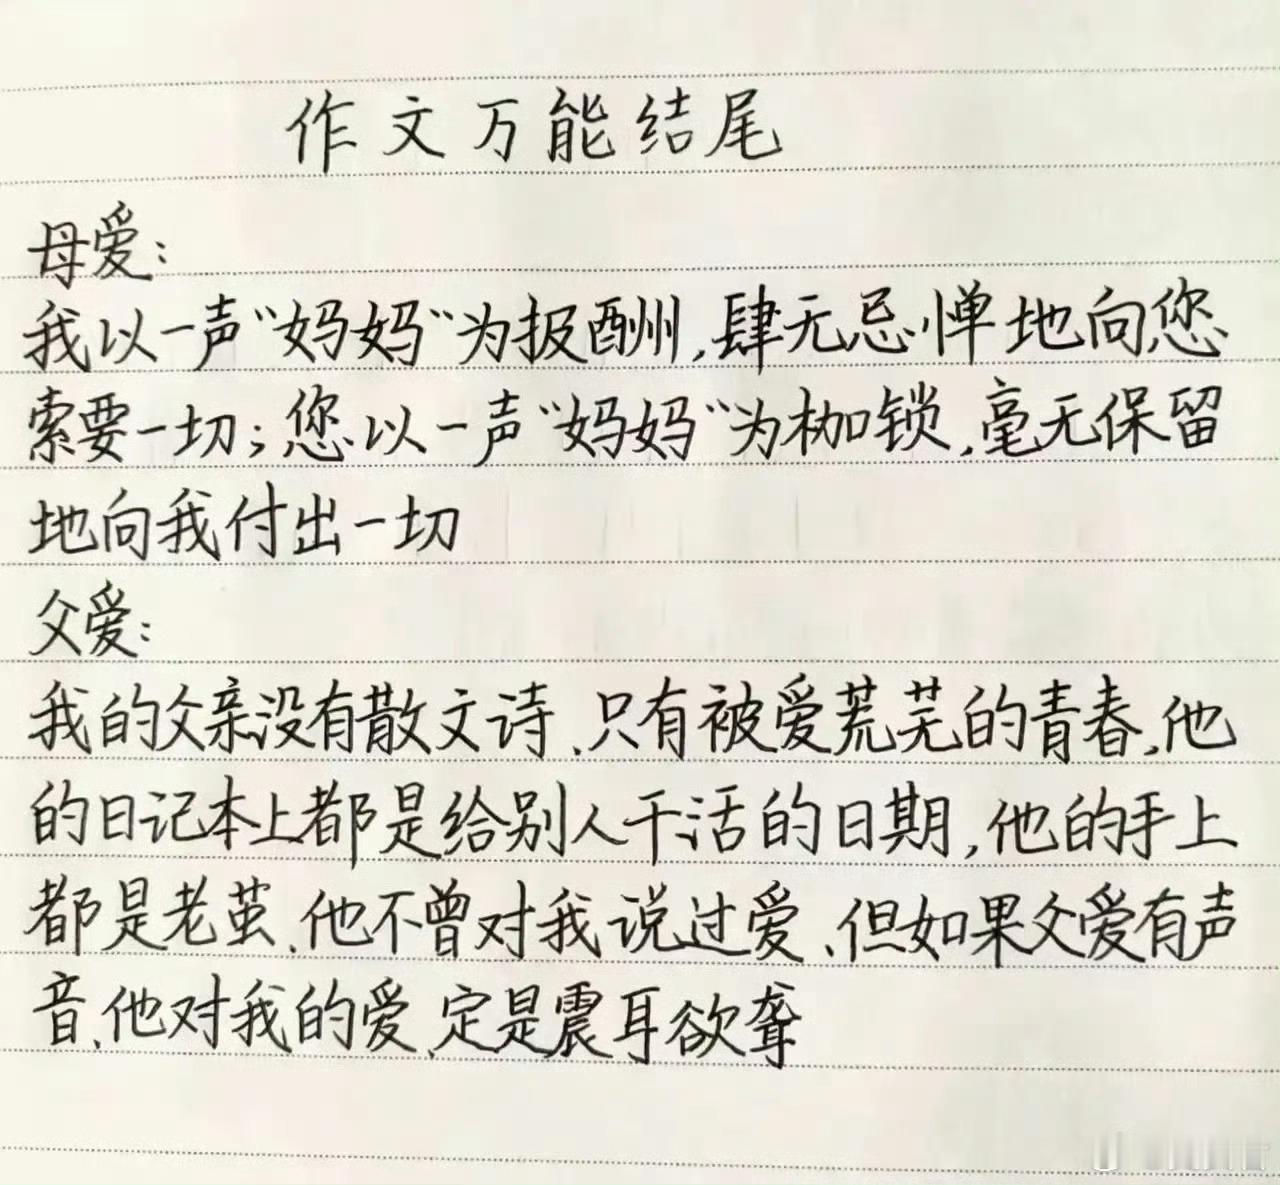 作文万能结尾
母爱:
我以一声“妈妈“为报酬,肆无忌惮地向您
索要一切;您以一声“妈妈“为枷锁,毫无保留
地向我付出一切
父爱:
我的父亲没有散文诗、只有被爱荒芜的青春,他
的日记本上都是给别人干活的日期,他的手上
都是老茧、他不曾对我说过爱、但如果父爱有声
音、他对我的爱、定是震耳欲聋